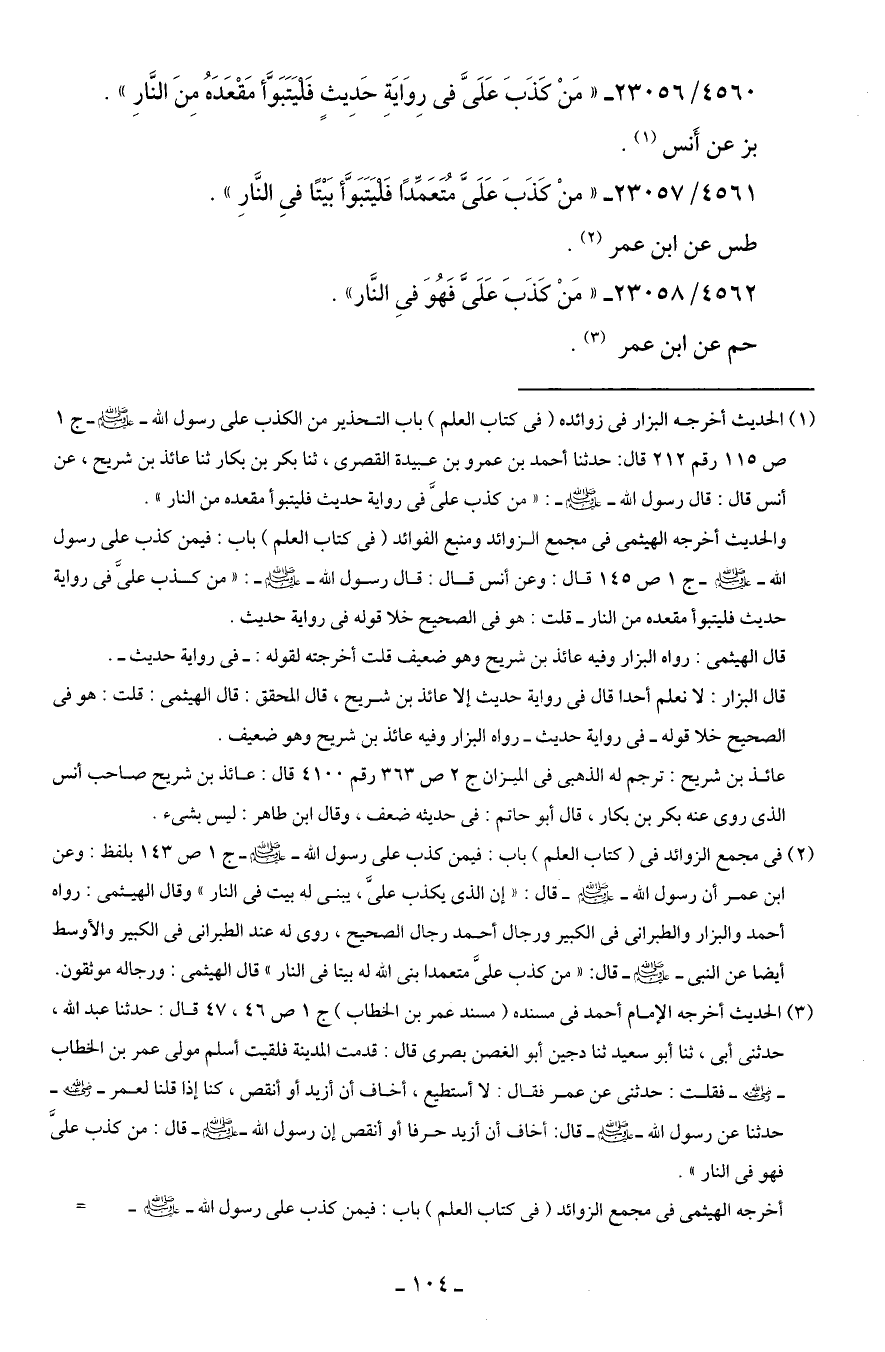 ٤٥٦٠/ ٢٣٠٥٦ـ « مَنْ كَذَبَ عَلَىَّ فى رِوَايَةِ حَدِيثٍ فَلْيَتَبَوَّأ مَقْعَدَهُ مِنَ النَّارِ » .
بز عن أَنس (١) .
٤٥٦١/ ٢٣٠٥٧ـ « منْ كَذَبَ عَلَىَّ مُتَعَمِّدًا فَلْيَتَبَوَّأ بَيْتًا فىِ النَّارِ » .
طس عن ابن عمر (٢) .
٤٥٦٢/ ٢٣٠٥٨ـ « مَنْ كَذَبَ عَلَىَّ فَهُوَ فىِ النَّار» .
حم عن ابن عمر (٣) .
(١) الحديث أخرجه البزار فى زوائده ( فى كتاب العلم ) باب التحذير من الكذب على رسول الله ـ ﷺ ـ ج ١
ص ١١٥ رقم ٢١٢ قال: حدثنا أحمد بن عمرو بن عبيدة القصرى ، ثنا بكر بن بكار ثنا عائذ بن شريح ، عن
أنس قال : قال رسول الله ـ ﷺ ـ : « من كذب علىَّ فى رواية حديث فليتبوأ مقعده من النار » .
والحديث أخرجه الهيثمى فى مجمع الزوائد ومنبع الفوائد ( فى كتاب العلم ) باب : فيمن كذب على رسول
الله ـ ﷺ ـ ج ١ ص ١٤٥ قال : وعن أنس قال : قال رسول الله ـ ﷺ ـ : « من كذب علىَّ فى رواية
حديث فليتبوأ مقعده من النار ـ قلت : هو فى الصحيح خلا قوله فى رواية حديث .
قال الهيثمى : رواه البزار وفيه عائذ بن شريح وهو ضعيف قلت أخرجته لقوله : ـ فى رواية حديث ـ .
قال البزار : لا نعلم أحدا قال فى رواية حديث إلا عائذ بن شريح ، قال المحقق : قال الهيثمى : قلت : هو فى
الصحيح خلا قوله ـ فى رواية حديث ـ رواه البزار وفيه عائذ بن شريح وهو ضعيف .
عائذ بن شريح : ترجم له الذهبى فى الميزان ج ٢ ص ٣٦٣ رقم ٤١٠٠ قال : عائذ بن شريح صاحب أنس
الذى روى عنه بكر بن بكار ، قال أبو حاتم : فى حديثه ضعف ، وقال ابن طاهر : ليس بشىء .
(٢) فى مجمع الزوائد فى ( كتاب العلم ) باب : فيمن كذب على رسول الله ـ ﷺ ـ ج ١ ص ١٤٣ بلفظ : وعن
ابن عمر أن رسول الله ـ ﷺ ـ قال : « إن الذى يكذب علىَّ ، يبنى له بيت فى النار » وقال الهيثمى : رواه
أحمد والبزار والطبرانى فى الكبير ورجال أحمد رجال الصحيح ، روى له عند الطبرانى فى الكبير والأوسط
أيضا عن النبى ـ ﷺ ـ قال: « من كذب علىَّ متعمدا بنى الله له بيتا فى النار » قال الهيثمى : ورجاله موثقون.
(٣) الحديث أخرجه الإمام أحمد فى مسنده ( مسند عمر بن الخطاب ) ج ١ ص ٤٦ ، ٤٧ قال : حدثنا عبد الله ،
حدثنى أبى ، ثنا أبو سعيد ثنا دجين أبو الغصن بصرى قال : قدمت المدينة فلقيت أسلم مولى عمر بن الخطاب
ـ رضي الله عنه ـ فقلت : حدثنى عن عمر فقال : لا أستطيع ، أخاف أن أزيد أو أنقص ، كنا إذا قلنا لعمر ـ رضي الله عنه ـ
حدثنا عن رسول الله ـ ﷺ ـ قال: أخاف أن أزيد حرفا أو أنقص إن رسول الله ـ ﷺ ـ قال : من كذب علىَّ
فهو فى النار » .
أخرجه الهيثمى فى مجمع الزوائد ( فى كتاب العلم ) باب : فيمن كذب على رسول الله ـ ﷺ ـ =
ـ ١٠٤ ـ